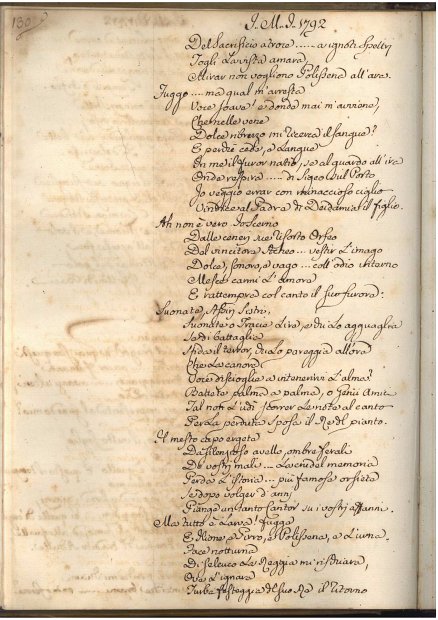 130
J. M. J. 1792
Del Sacrificio atroce ...... a ignoti Spettri
Togli la vista amara,
Mirar non vogliono Polissena all'are.
Fuggo .... ma qual m'arresta
Voce soave! e donde mai m'avviene,
Che nelle vene
Dolce ribrezzo mi ricerca il sangue?
E perchè cede, e langue
In me il furor natio, se al guardo all'ira
Onde respira ..... di Sigeo sul Porto
Io veggio errar con minaccioso ciglio
Vindice al Padre di Deidamia il figlio.
Ah non è vero Io scerno
Dalle ceneri sue risorto Orfeo
Del vincitore Acheo ... vestir l'imago
Dolce, sonoro, e vago ... coll'odio interno
Mesce carmi l'amore
E rattempra col canto il suo furore:
Suonate, Sistri,
Suonate o Trace Lira, e chi l'agguaglia
Se di battaglia
Sfida il terror, chi lo pareggia allora
Che la canora
Voce discioglie a intenerirvi l'alma?
Battete palma a palma, o Genii Amici
Tal non l'udì scorrer le note al canto
Per la perduta sposa il Re del pianto.
Il mesto capo ergete
Da silenzioso avello, ombre ferali
De vostri mali ... la crudel memoria
Perda l'istoria ... più famosa or sieta
Se dopo volger d'anni
Piange un tanto Cantor su i vostri affanni.
Ma tutto è Larva! fugge
E Ilione, e Pirro, e Polissena, e l'urna.
Face notturna
Di Seleuco la Reggia mi rischiara,
Ove l'ignara
Turba festeggia del suo Re il ritorno